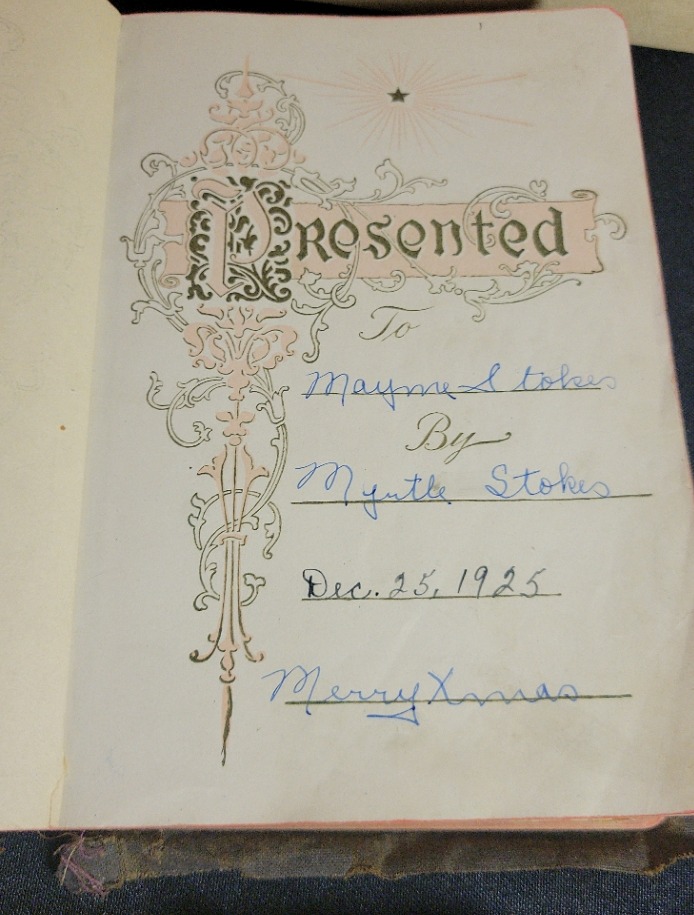 Presented
To
Mayme Stokes
By
Myrtle Stokes
Dec. 25, 1925
Merry Xmas